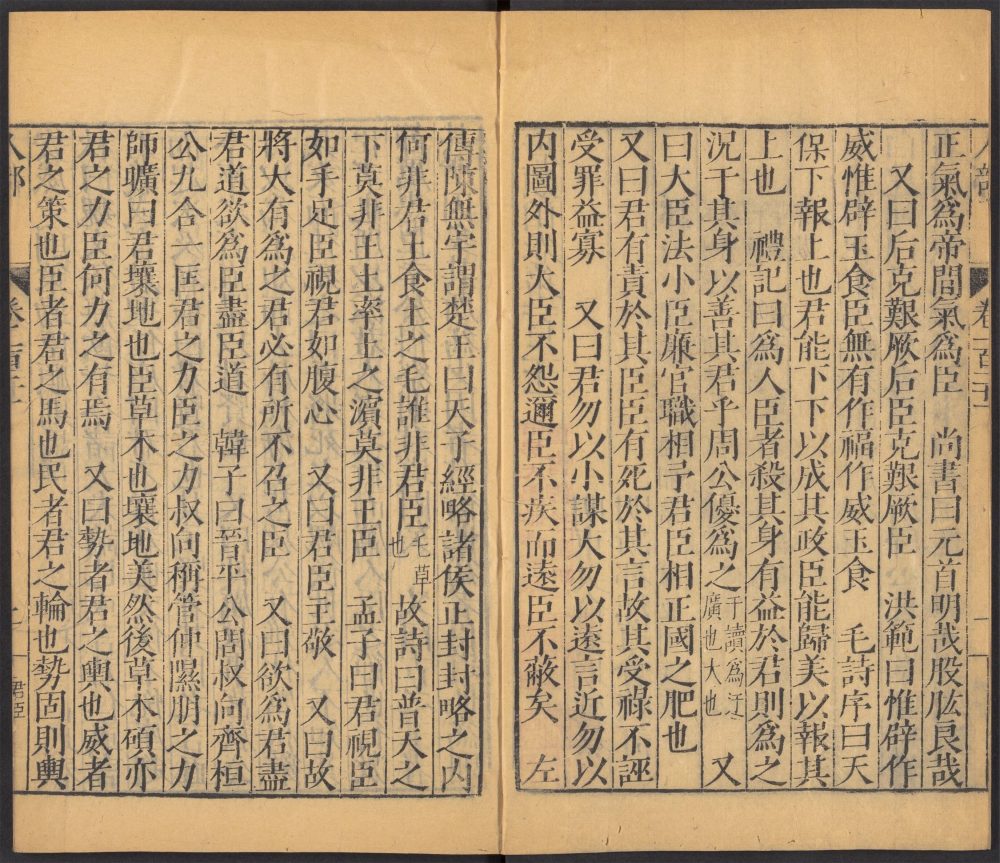 正氣爲帝間氣爲臣　尚書曰元首明哉股肱良哉
又曰后克艱厥后臣克艱厥臣　洪範曰惟辟作
威惟辟玉食臣無有作福作威玉食　毛詩序曰天
保下報上也君能下下以成其政臣能歸美以報其
上也　禮記曰爲人臣者殺其身有益於君則爲之
況于其身以善其君乎周公優爲之于讀爲迂迂廣也大也　又
曰大臣法小臣廉官職相予君臣相正國之肥也
又曰君有責於其臣臣有死於其言故其受祿不誣
受罪益寡　又曰君勿以小謀大勿以遠言近勿以
内圖外則大臣不怨邇臣不疾而遠臣不蔽矣　左
傳陳無宇謂楚王曰天子經略諸侯正封封略之内
何非君土食土之毛誰非君臣毛草也故詩曰普天之
下莫非王土率土之濱莫非王臣　孟子曰君視臣
如手足臣視君如腹心　又曰君臣主敬　又曰故
將大有爲之君必有所不召之臣　又曰欲爲君盡
君道欲爲臣盡臣道　韓子曰晉平公問叔向齊桓
公九合一匡君之力臣之力叔向稱管仲隰朋之力
師曠曰君壤地也臣草木也壤地美然後草木碩亦
君之力臣何力之有焉　又曰勢者君之輿也威者
君之策也臣者君之馬也民者君之輪也勢固則輿
人部
君臣